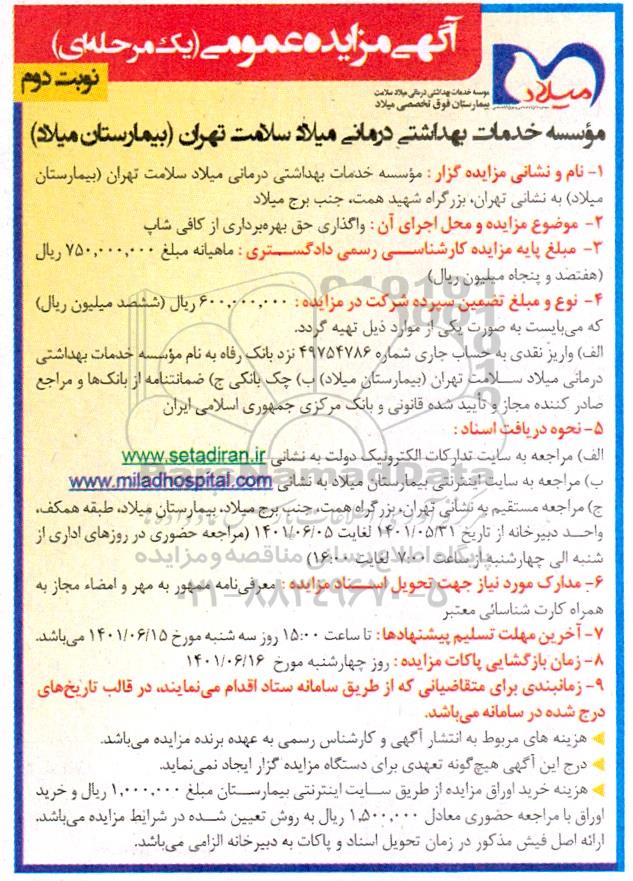 آگهی مزایده عمومی (یک مرحله‌ای)
نوبت دوم
میلاد
موسسه خدمات بهداشتی درمانی میلاد سلامت
بیمارستان فوق تخصصی میلاد
مؤسسه خدمات بهداشتی درمانی میلاد سلامت تهران (بیمارستان میلاد)
۱- نام و نشانی مزایده گزار : مؤسسه خدمات بهداشتی درمانی میلاد سلامت تهران (بیمارستان
میلاد) به نشانی تهران، بزرگراه شهید همت، جنب برج میلاد
۲- موضوع مزایده و محل اجرای آن : واگذاری حق بهره‌برداری از کافی شاپ
۳- مبلغ پایه مزایده کارشناسی رسمی دادگستری : ماهیانه مبلغ ۷۵۰,۰۰۰,۰۰۰ ریال
(هفتصد و پنجاه میلیون ریال)
۴- نوع و مبلغ تضمین سپرده شرکت در مزایده : ۶۰۰,۰۰۰,۰۰۰ ریال (ششصد میلیون ریال)
که می‌بایست به صورت یکی از موارد ذیل تهیه گردد.
الف) واریز نقدی به حساب جاری شماره ۴۹۷۵۴۷۸۶ نزد بانک رفاه به نام مؤسسه خدمات بهداشتی
درمانی میلاد سلامت تهران (بیمارستان میلاد) ب) چک بانکی ج) ضمانتنامه از بانک‌ها و مراجع
صادر کننده مجاز و تأیید شده قانونی و بانک مرکزی جمهوری اسلامی ایران
۵- نحوه دریافت اسناد :
الف) مراجعه به سایت تدارکات الکترونیک دولت به نشانی www.setadiran.ir
ب) مراجعه به سایت اینترنتی بیمارستان میلاد به نشانی www.miladhospital.com
ج) مراجعه مستقیم به نشانی تهران، بزرگراه همت، جنب برج میلاد، بیمارستان میلاد، طبقه همکف،
واحد دبیرخانه از تاریخ ۱۴۰۱/۰۵/۳۱ لغایت ۱۴۰۱/۰۶/۰۵ (مراجعه حضوری در روزهای اداری از
شنبه الی چهارشنبه از ساعت ۷:۰۰ لغایت ۱۶:۰۰)
۶- مدارک مورد نیاز جهت تحویل اسناد مزایده : معرفی‌نامه ممهور به مهر و امضاء مجاز به
همراه کارت شناسائی معتبر
۷- آخرین مهلت تسلیم پیشنهادها : تا ساعت ۱۵:۰۰ روز سه شنبه مورخ ۱۴۰۱/۰۶/۱۵ می‌باشد.
۸- زمان بازگشایی پاکات مزایده : روز چهارشنبه مورخ ۱۴۰۱/۰۶/۱۶
۹- زمانبندی برای متقاضیانی که از طریق سامانه ستاد اقدام می‌نمایند، در قالب تاریخ‌های
درج شده در سامانه می‌باشد.
هزینه های مربوط به انتشار آگهی و کارشناس رسمی به عهده برنده مزایده می‌باشد.
درج این آگهی هیچ‌گونه تعهدی برای دستگاه مزایده گزار ایجاد نمی‌نماید.
هزینه خرید اوراق مزایده از طریق سایت اینترنتی بیمارستان مبلغ ۱,۰۰۰,۰۰۰ ریال و خرید
اوراق با مراجعه حضوری معادل ۱,۵۰۰,۰۰۰ ریال به روش تعیین شده در شرایط مزایده می‌باشد.
ارائه اصل فیش مذکور در زمان تحویل اسناد و پاکات به دبیرخانه الزامی می‌باشد.